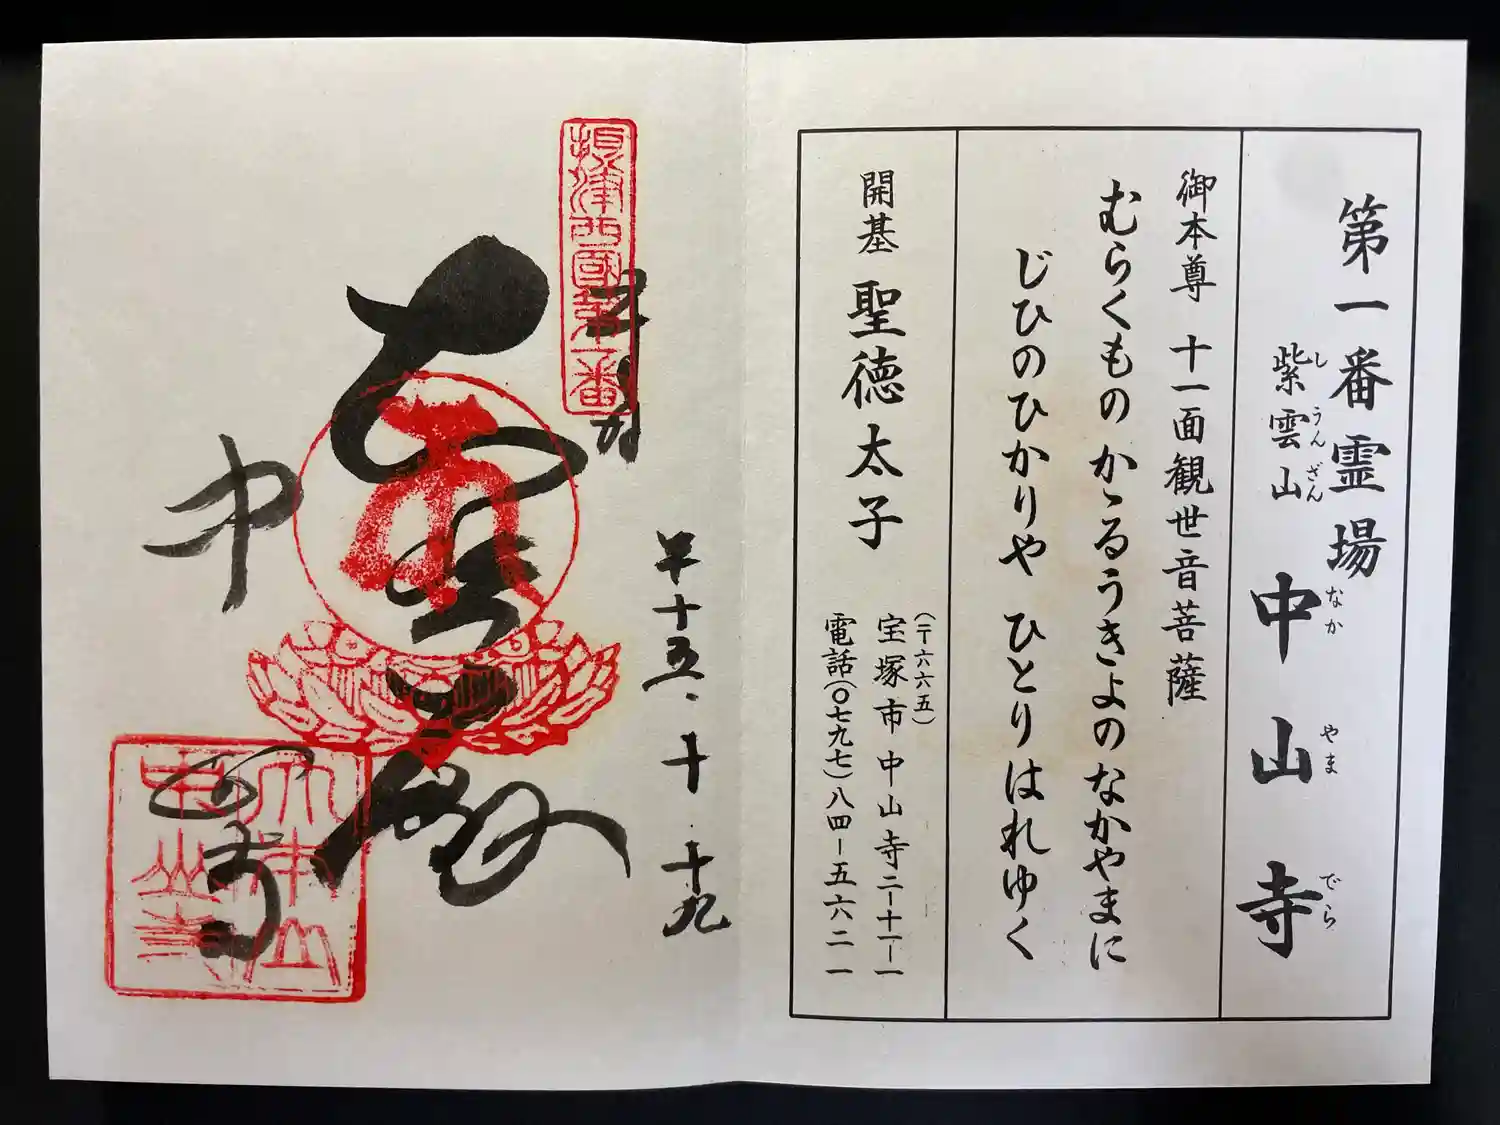 第一番霊場
紫雲山 中山寺
し うん ざん
なか やま でら
御本尊 十一面観世音菩薩
むらくもの かゝるうきよの なかやまに
じひのひかりや ひとりはれゆく
開基 聖徳太子
(〒六六五)
宝塚市中山寺二ー十一ー一
電話(〇七九七)八四ー五六二一
摂津西國第一番
平十五、十、十九
中
山寺
大本山
中山寺